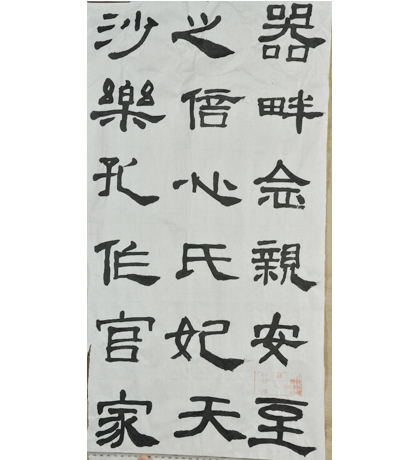 器畔念親安至
之信心氏妃天
沙樂孔作官家